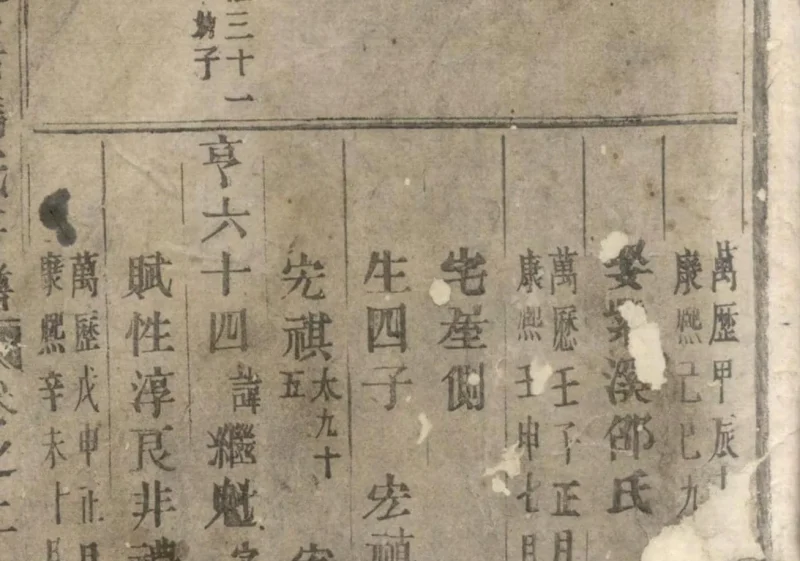 三十一
子
萬歷甲辰十
康熙己巳九
娶紫溪邵氏
萬歷壬子正月
康熙壬申七月
宅產側
生四子 宏禎
宏祺太九十五
亨六十四諱繼魁
賦性淳良非禮
萬歷戊申正月
康熙辛未十月